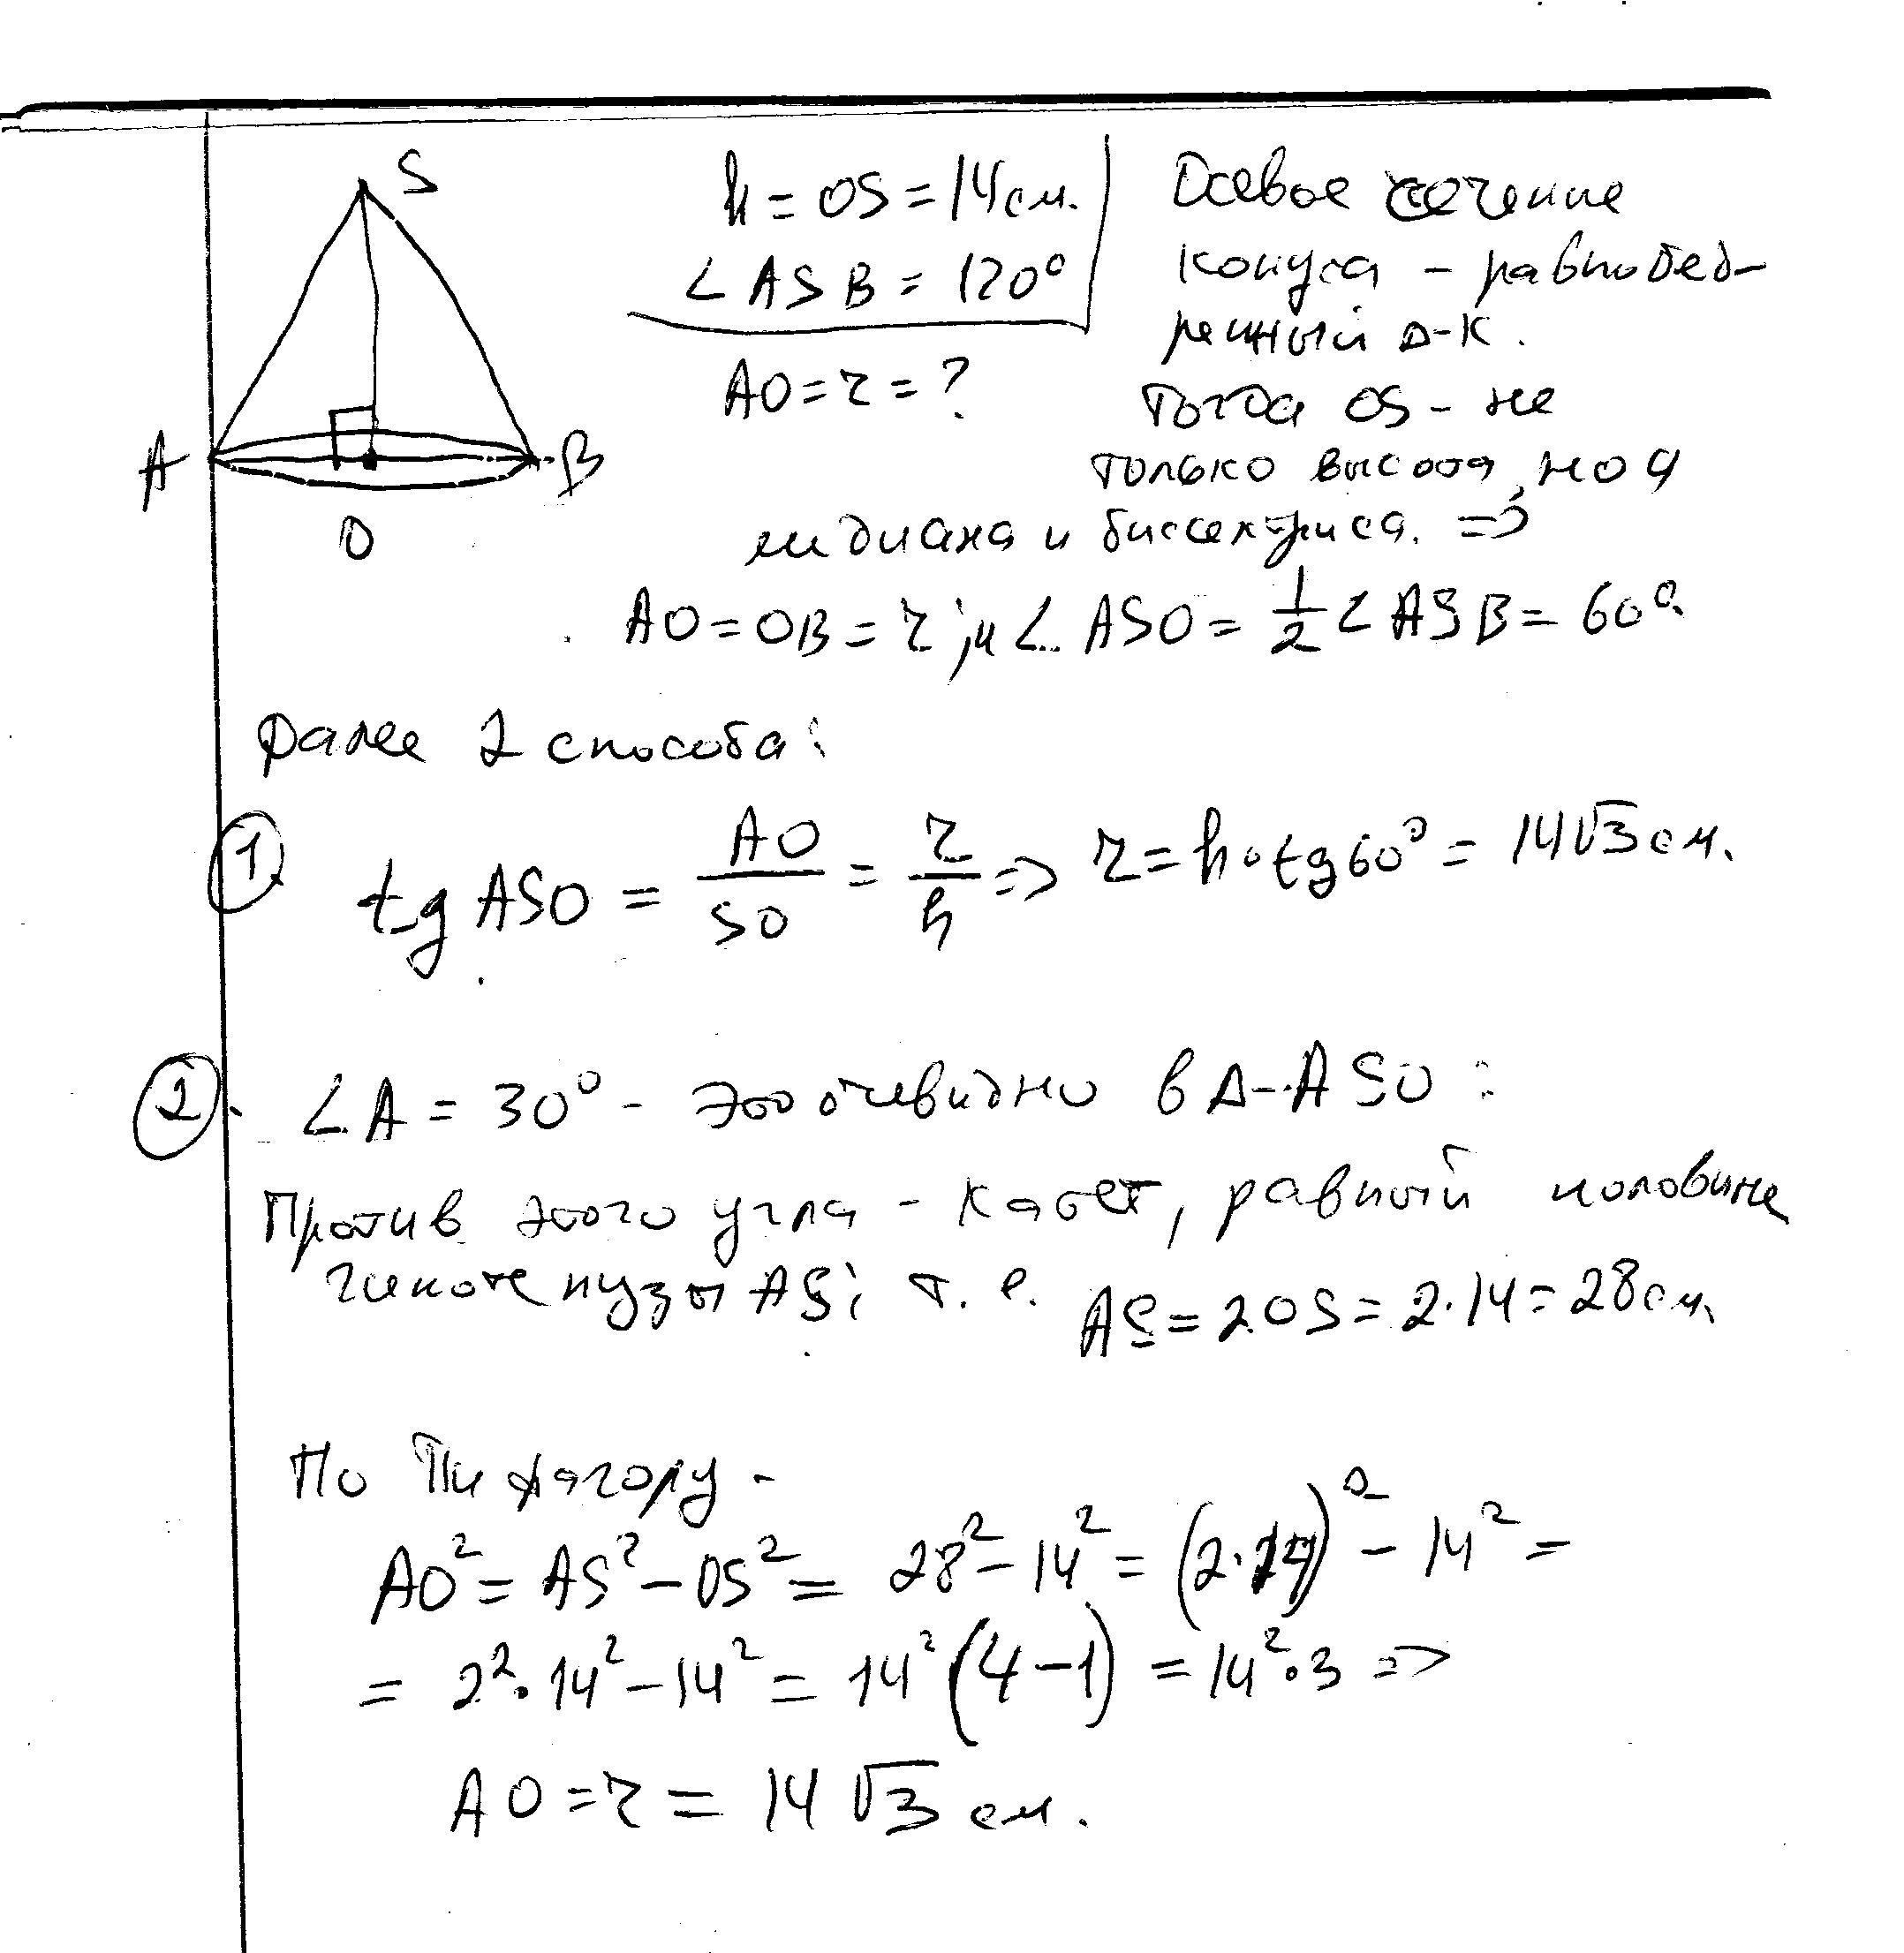 S
A
B
O
h = OS = 14 см.
∠ ASB = 120°
AO = r = ?
Осевое сечение
конуса - равнобед-
ренный Δ-к.
Тогда OS - не
только высота, но и
медиана и биссектриса. =>
AO = OB = r; и ∠ ASO = 1/2 ∠ ASB = 60°.
Далее 2 способа:
1. tg ASO = AO/SO = r/h => r = h · tg 60° = 14√3 см.
2. ∠A = 30° - это очевидно в Δ-ASO:
Против этого угла - катет, равный половине
гипотенузы AS; т. е. AS = 2OS = 2·14 = 28 см.
По Пифагору -
AO² = AS² - OS² = 28² - 14² = (2·14)² - 14² =
= 2²·14² - 14² = 14² (4 - 1) = 14²·3 =>
AO = r = 14√3 см.